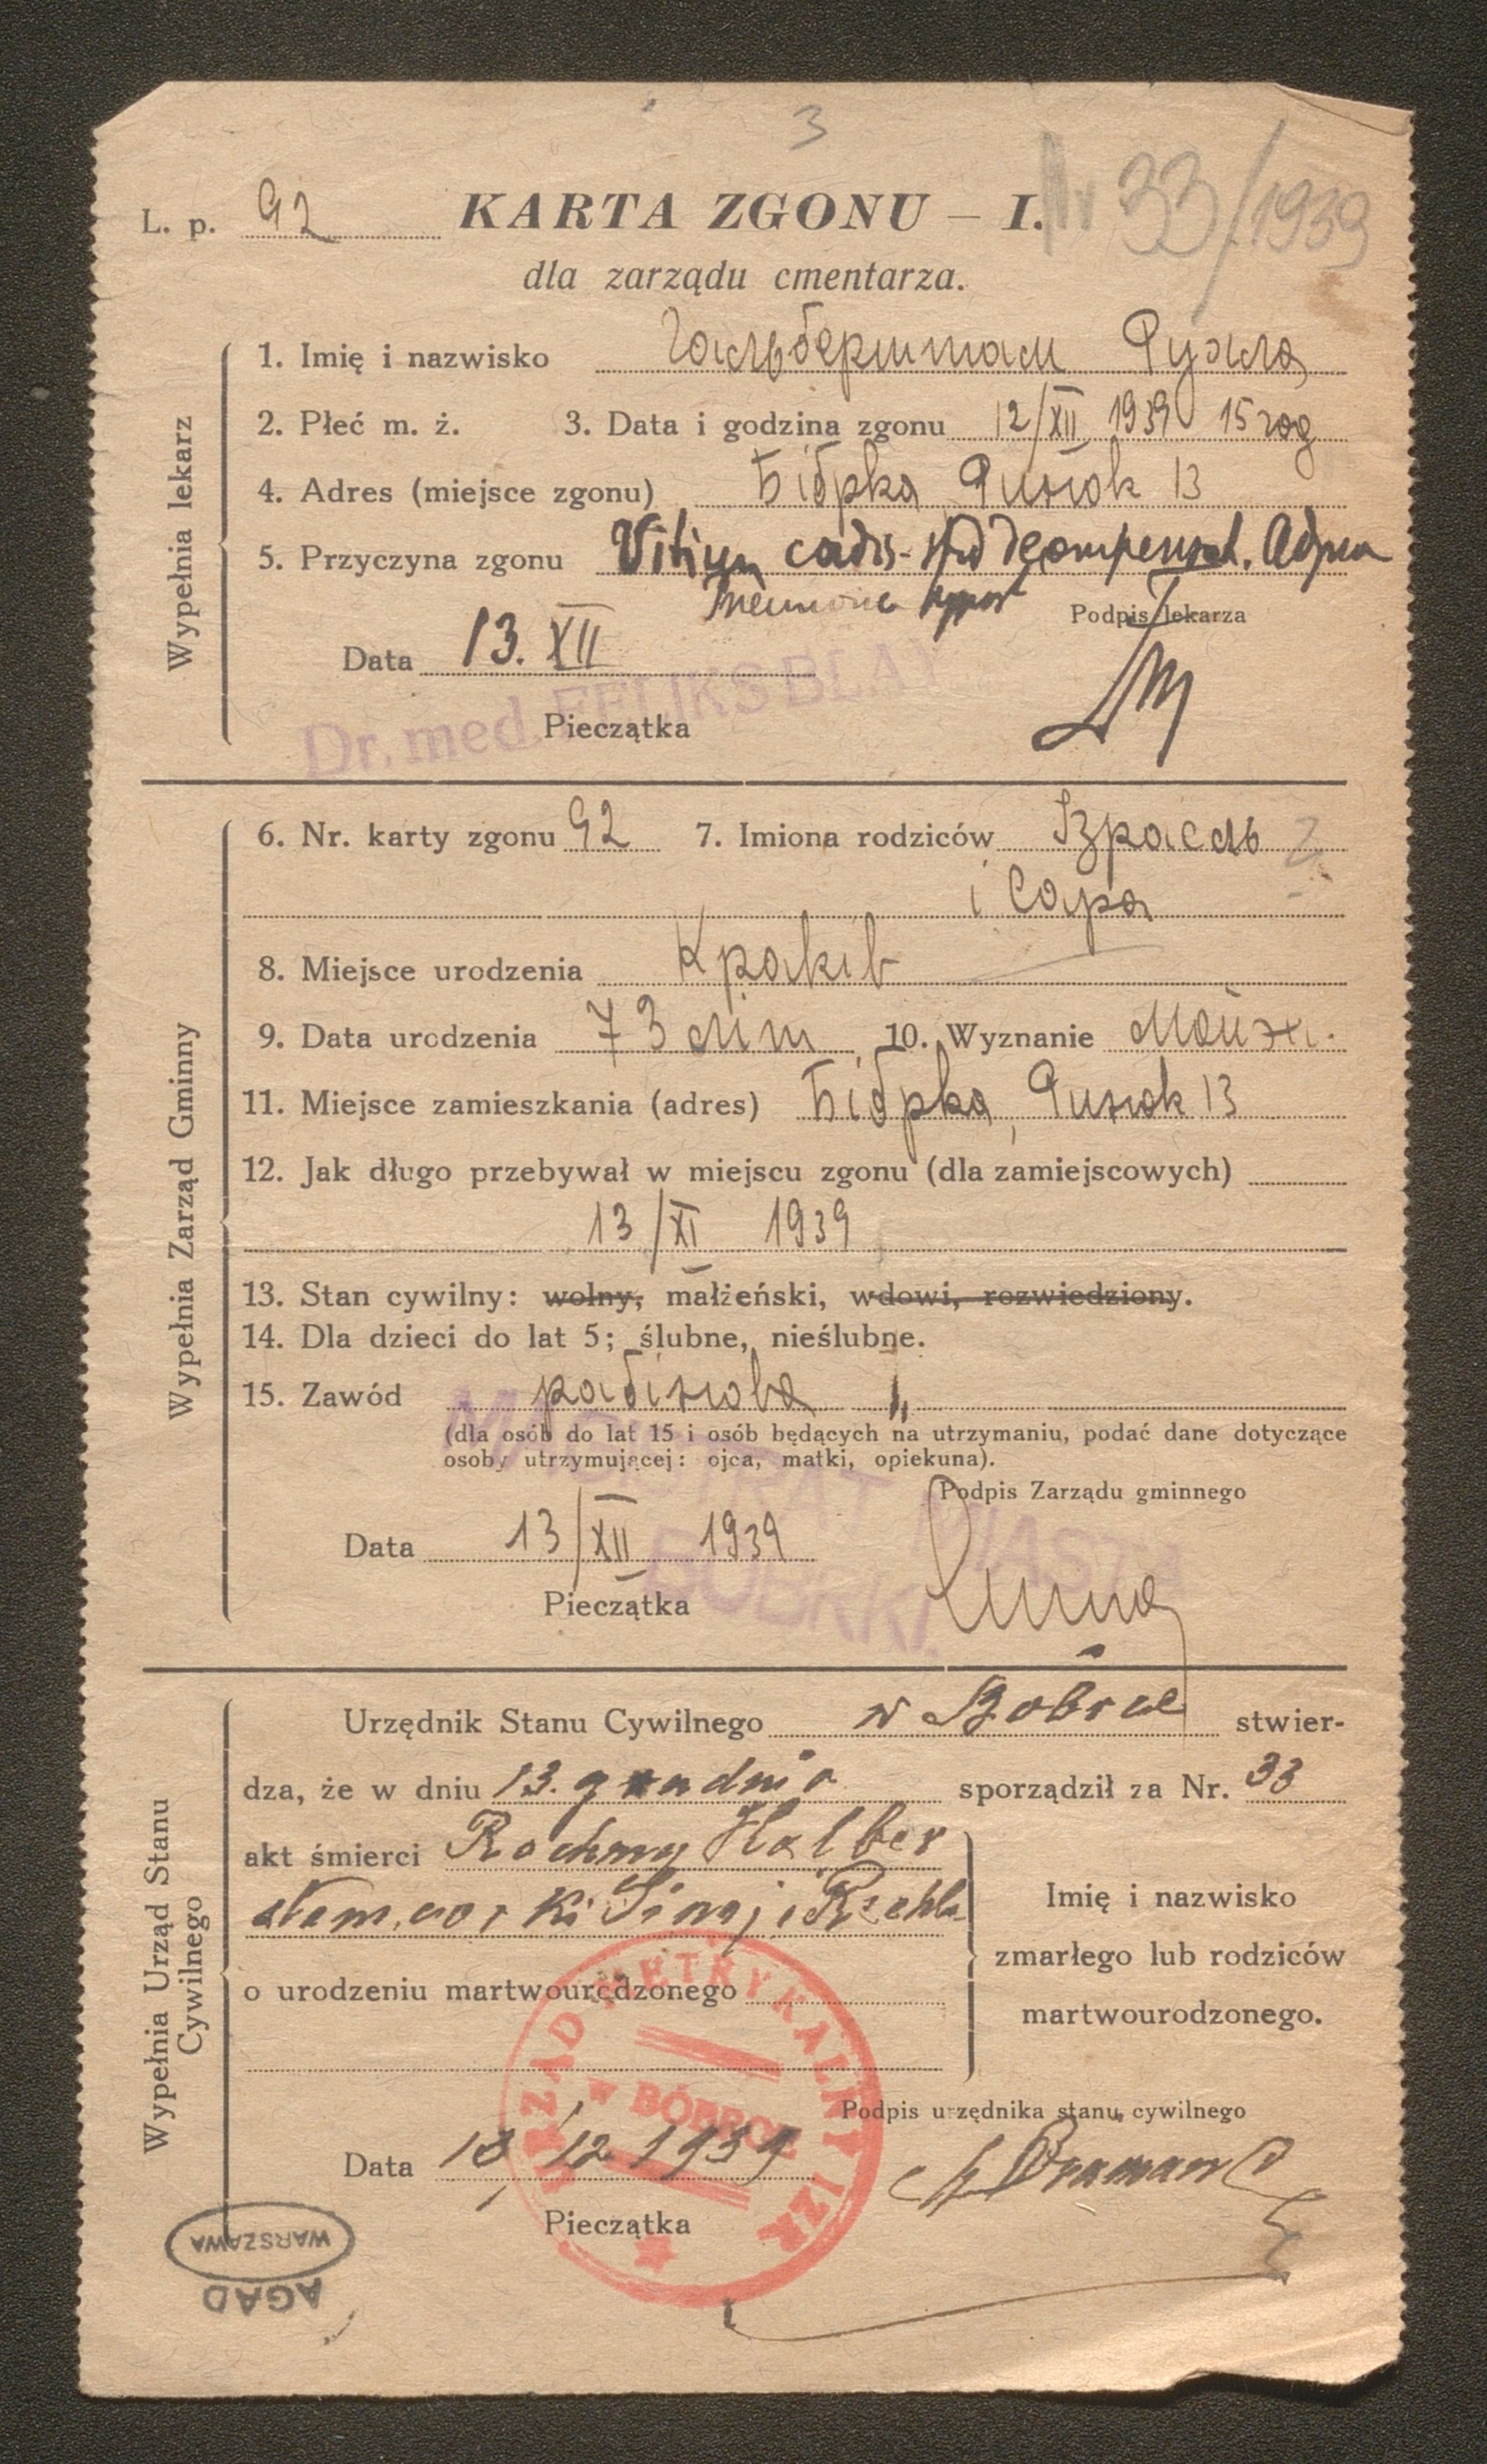 3
L. p. 92 KARTA ZGONU – I. Nr 33/1939
dla zarządu cmentarza.
Wypełnia lekarz
1. Imię i nazwisko Гальберштам
2. Płeć m. ż. 3. Data i godzina zgonu 12/XII 1939 15 год
4. Adres (miejsce zgonu) Бібрка Ринок 13
5. Przyczyna zgonu Vitium cordis
Podpis lekarza
Data 13. XII
Dr. med. FELIKS BLAY
Pieczątka
Wypełnia Zarząd Gminny
6. Nr. karty zgonu 92 7. Imiona rodziców Ізраель
і Сара
8. Miejsce urodzenia Краків
9. Data urodzenia 73 літ 10. Wyznanie Мойж.
11. Miejsce zamieszkania (adres) Бібрка, Ринок 13
12. Jak długo przebywał w miejscu zgonu (dla zamiejscowych)
13/XI 1939
13. Stan cywilny: wolny, małżeński, wdowi, rozwiedziony.
14. Dla dzieci do lat 5; ślubne, nieślubne.
15. Zawód
(dla osób do lat 15 i osób będących na utrzymaniu, podać dane dotyczące
osoby utrzymującej: ojca, matki, opiekuna).
MAGISTRAT MIASTA
BÓBRKI.
Podpis Zarządu gminnego
Data 13/XII 1939
Pieczątka
Wypełnia Urząd Stanu
Cywilnego
Urzędnik Stanu Cywilnego w Bóbrce stwier-
dza, że w dniu 13. grudnia sporządził za Nr. 33
akt śmierci Halber
stam, córki i
Imię i nazwisko
zmarłego lub rodziców
martwourodzonego.
o urodzeniu martwourodzonego
URZĄD METRYKALNY IZR.
w BÓBRCE
Podpis urzędnika stanu cywilnego
Data 13/12 1939
Pieczątka
WARSZAWA
AGAD